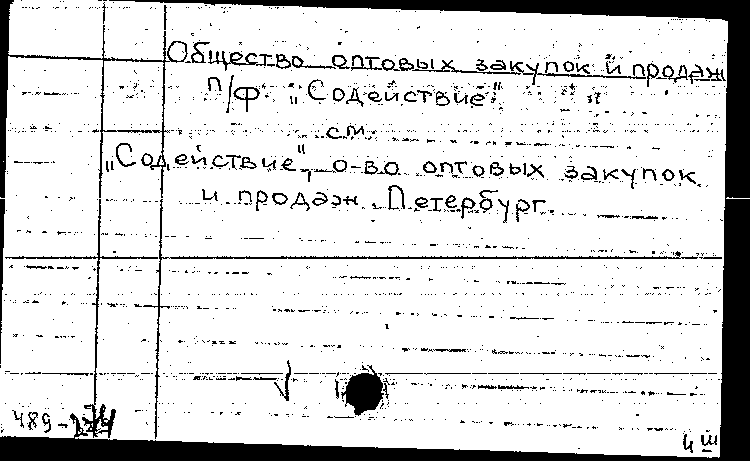 Общество оптовых закупок и продаж
п/ф. „Содействие"
см.
„Содействие", о-во оптовых закупок
и продаж. Петербург.
489-
4 III